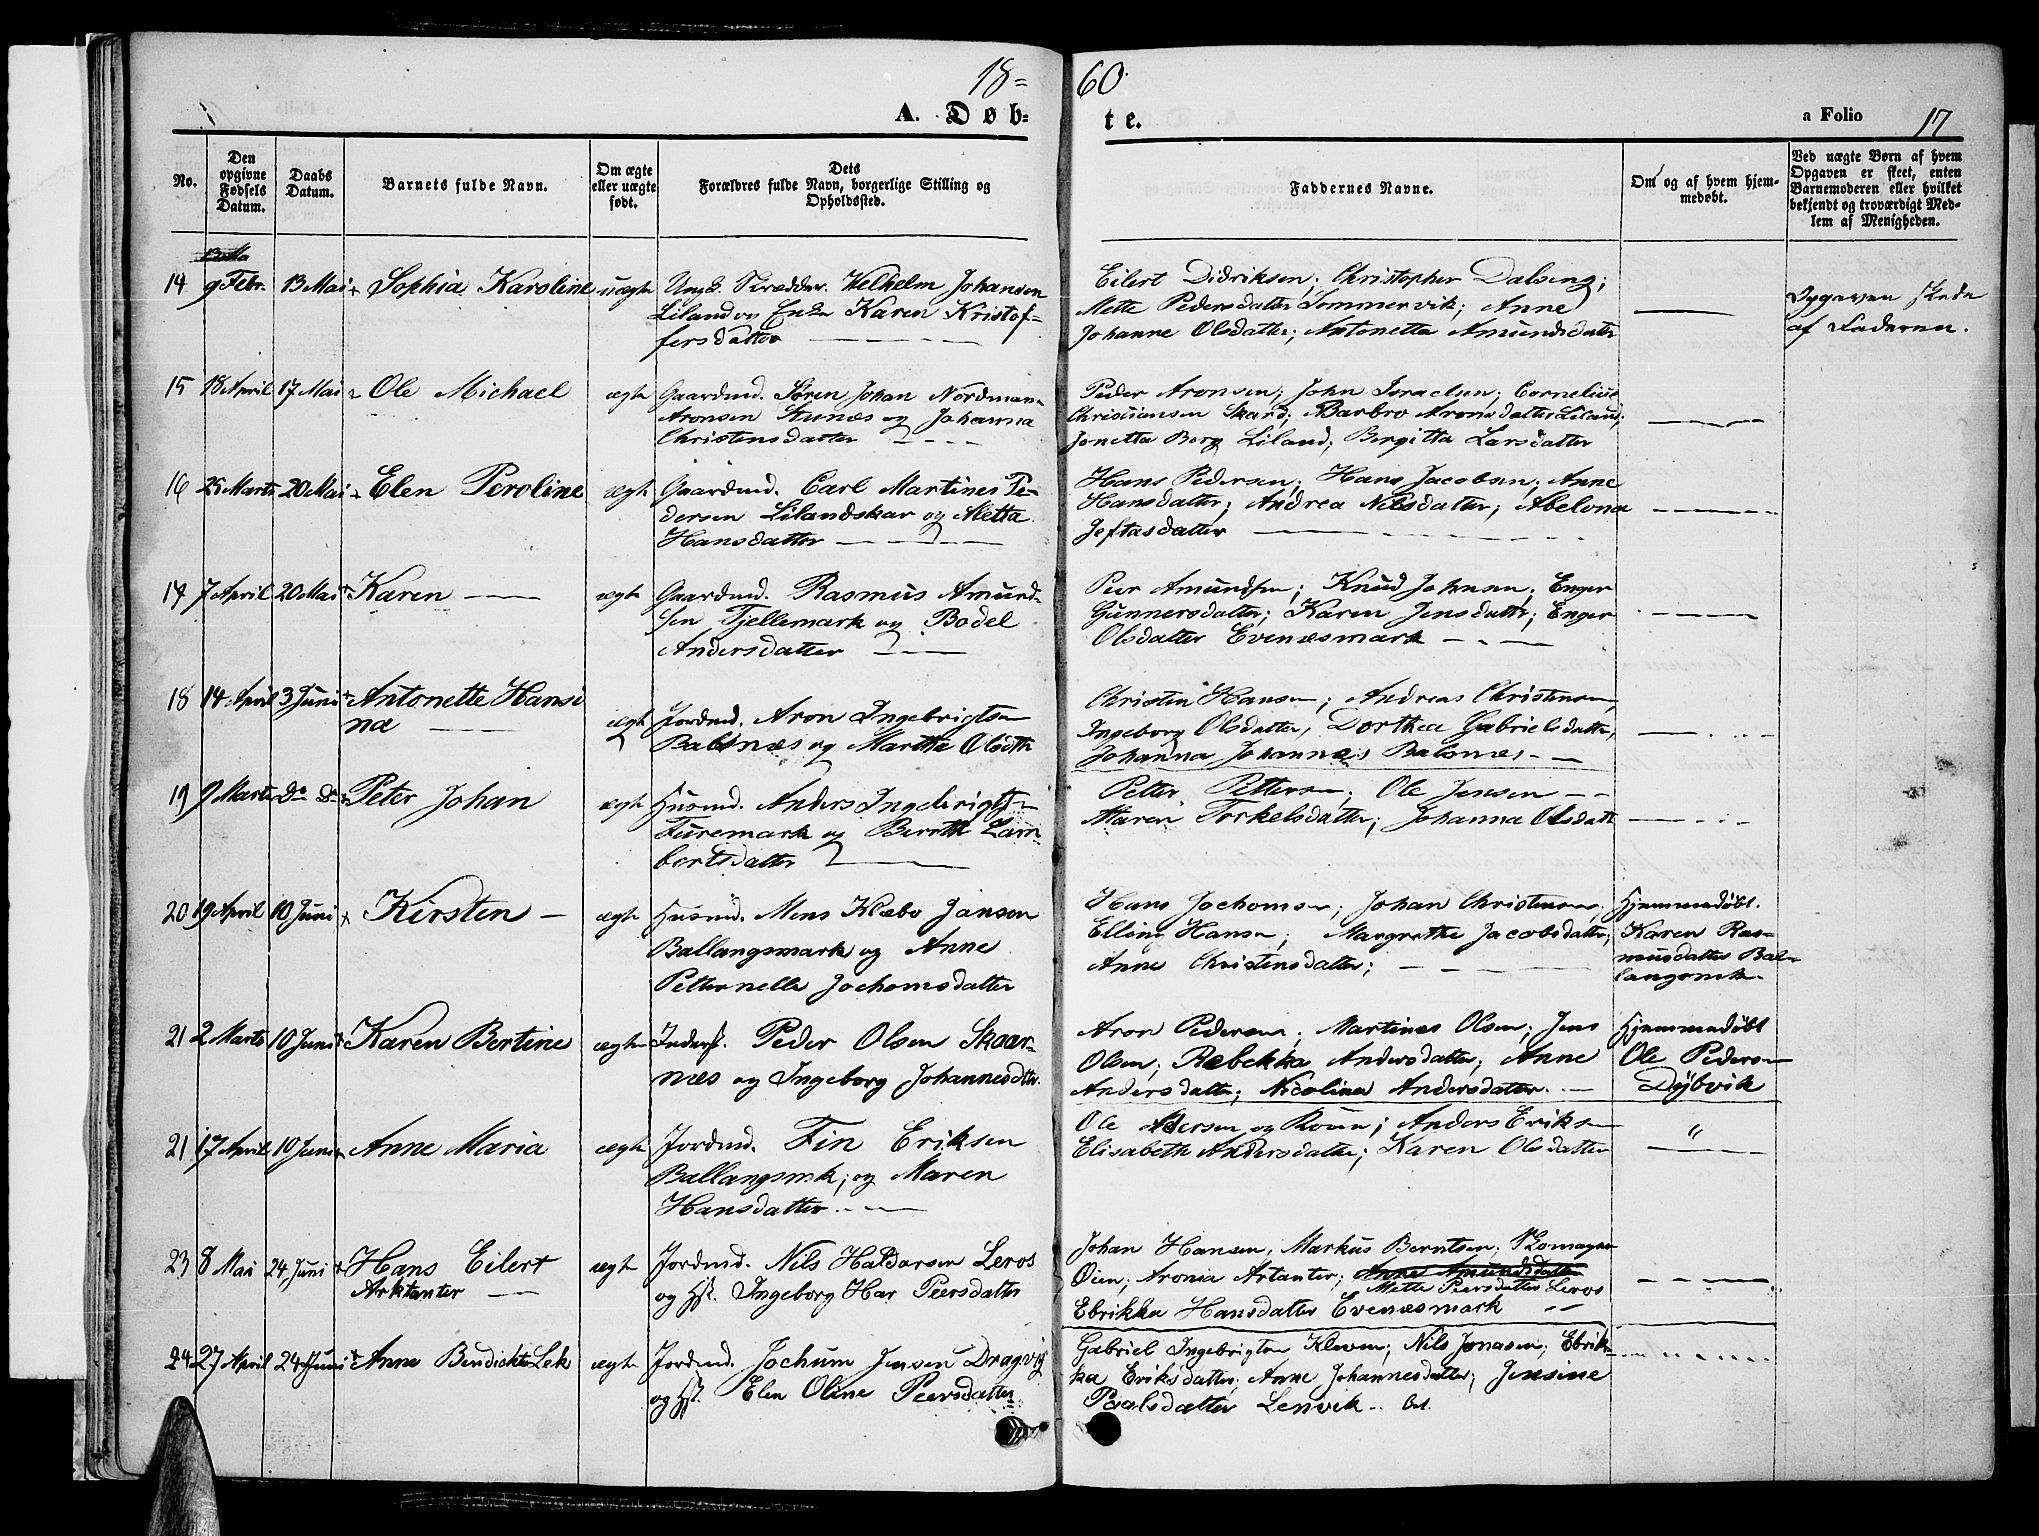 18=
60
A. Døb=
te.
a Folio 17
No.
Den opgivne Fødsels Datum.
Daabs Datum.
Barnets fulde Navn.
Om ægte eller uægte født.
Dets Forældres fulde Navn, borgerlige Stilling og Opholdssted.
Faddernes Navne.
Om og af hvem hjemmedøbt.
Ved uægte Børn af hvem Opgaven er skeet, enten Barnemoderen eller hvilket bekjendt og troværdigt Medlem af Menigheden.
14 9 Febr. 13 Mai Sophia Karoline uægte Ungk. Skrædder. Velhelm Johansen
Liland og Enke Karen Kristof-
fersdatter
Eilert Didriksen; Christopher Dalseng;
Mette Pedersdatter Sommervik; Anne
Johanne Olsdatter; Antonetta Amundsdatter
Opgaven skede
af Faderen.
15 18 April 17 Mai Ole Michael ægte Gaardmd. Sören Johan Nordmann
Aronsen Stunæs og Johanna
Christensdatter
Peder Aronsen; John Israelsen; Cornelius
Christiansen Skard; Barbro Aronsdatter Liland;
Jonetta Berg Liland; Birgitta Larsdatter
16 25 Marts 20 Mai Elen Peroline ægte Gaardmd. Carl Martines Pe-
dersen Lilandskar og Metta
Hansdatter
Hans Pedersen; Hans Jacobsen; Anne
Hansdatter; Andrea Nilsdatter; Abelona
Jeftasdatter
17 7 April 20 Mai Karen ægte Gaardmd. Rasmus Amund-
sen Tjellemark og Bodel
Andersdatter
Peer Amundsen; Knud Johnsen; Enger
Gunnersdatter; Karen Jensdatter; Enger
Olsdatter Evenæsmark
18 14 April 3 Juni Antonette Hansi
na ægte Jordmd. Aron Ingebrigtsen
Balsnæs og Martha Olsdtr
Christen Hansen; Andreas Christensen,
Ingeborg Olsdatter, Dorthea Gabrielsdatter,
Johanna Johannes Balsnæs
19 9 Marts Do Do Peter Johan ægte Husmd. Anders Ingebrigtsen
Furemark og Bereth Lam
bertsdatter
Petter Pettersen; Ole Jensen
Maren Torkelsdatter; Johanna Olsdatt
20 19 April 10 Juni Kirsten ægte Husmd. Mons Klæbo Jonsen
Ballangsmark og Anne
Petternelle Jochomsdatter
Hans Jochomsen; Johan Christensen;
Elling Hansen; Margrethe Jacobsdatter;
Anne Christensdatter;
Hjemmedøbt.
Karen Ras-
musdatter Bal-
langsmk.
21 2 Marts 10 Juni Karen Bertine ægte Inderst. Peder Olsen Skaar-
næs og Ingeborg Johannesdtter
Aron Pedersen; Martines Olsen; Jens
Olsen; Rebekka Andersdatter; Anne
Andersdatter; Nicolina Andersdatter.
Hjemmedøbt
Ole Pedersen
Dybvik
21 17 April 10 Juni Anne Maria ægte Jordmd. Fin Eriksen
Ballangsmk; og Maren
Hansdatter
Ole Andersen og Kone; Anders Eriksen
Elisabeth Andersdatter; Karen Olsdatter
23 8 Mai 24 Juni Hans Eilert
Arktanter ægte Jordmd. Nils Haldorsen Leros
og Hst. Ingeborg Har Peersdatter
Johan Hansen; Markus Berntsen;
Öien; Aronia Artanter; Anne Amundsdatter
Mette Peersdatter Leros
Ebrikka Hansdatter Evenæsmark
24 27 April 24 Juni Anne Bendichte Lek ægte Jordmd. Jochum Jensen Dragvig
og Hst. Elen Oline Peersdatter
Gabriel Ingebrigtsen Kleven; Nils Jonasen; Ebrik-
ka Eriksdatter; Anne Johannesdatter; Jensine
Paalsdatter Lenvik